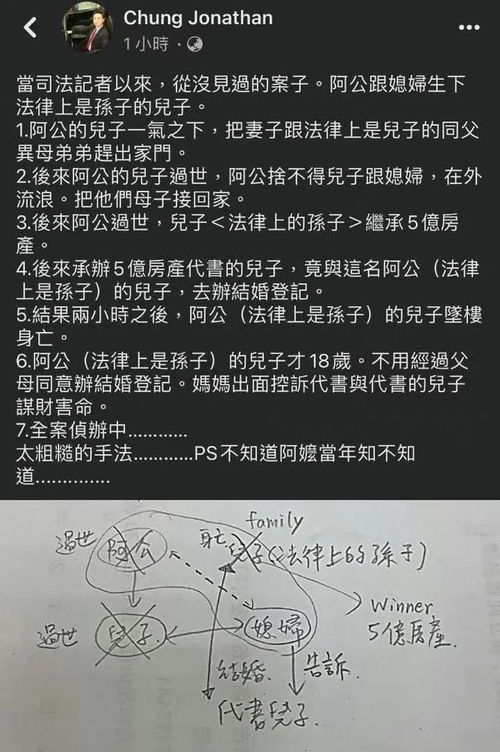 Chung Jonathan
1 小時 ·
當司法記者以來，從沒見過的案子。阿公跟媳婦生下
法律上是孫子的兒子。
1.阿公的兒子一氣之下，把妻子跟法律上是兒子的同父
異母弟弟趕出家門。
2.後來阿公的兒子過世，阿公捨不得兒子跟媳婦，在外
流浪。把他們母子接回家。
3.後來阿公過世，兒子＜法律上的孫子＞繼承5億房
產。
4.後來承辦5億房產代書的兒子，竟與這名阿公（法律
上是孫子）的兒子，去辦結婚登記。
5.結果兩小時之後，阿公（法律上是孫子）的兒子墜樓
身亡。
6.阿公（法律上是孫子）的兒子才18歲。不用經過父
母同意辦結婚登記。媽媽出面控訴代書與代書的兒子
謀財害命。
7.全案偵辦中............
太粗糙的手法............PS不知道阿嬤當年知不知
道..............
family
過世 阿公 身亡 兒子(法律上的孫子)
Winner
5億房產.
過世 兒子. 媳婦
結婚. 告訴.
代書兒子.